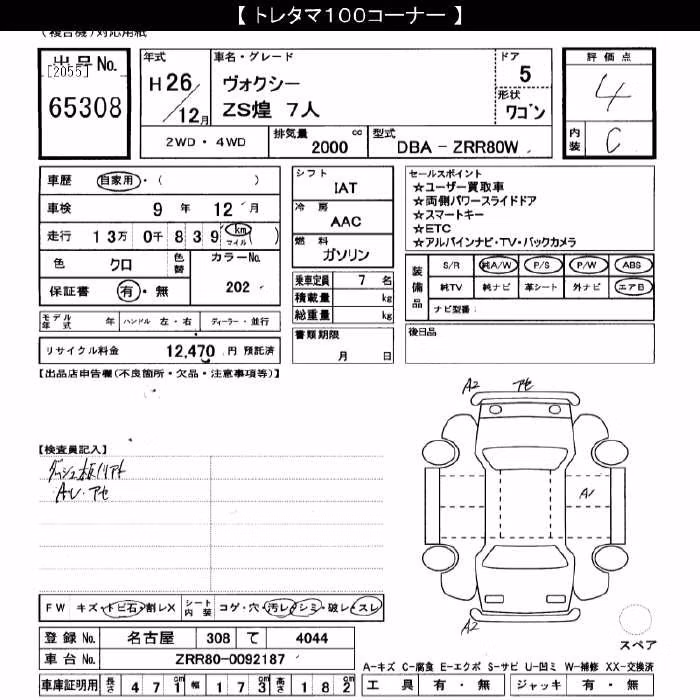 【 トレタマ100コーナー 】
(複合機)対応用紙
出品No.
[2055]
65308
年式
H26/12月
車名・グレード
ヴォクシー
ZS煌 7人
ドア
5
形状
ワゴン
評価点
4
内装
C
2WD・4WD
排気量 2000 cc
型式 DBA - ZRR80W
車歴 自家用・( )
車検 9年 12月
走行 13万 0千 839 km マイル ( )
色 クロ
色替
カラーNo. 202
保証書 有・無
モデル年式 年 ハンドル 左・右 ディーラー・並行
リサイクル料金 12,470 円 預託済
シフト
IAT
冷房
AAC
燃料
ガソリン
乗車定員 7 名
積載量 kg
総重量 kg
書類期限
月 日
セールスポイント
☆ユーザー買取車
☆両側パワースライドドア
☆スマートキー
☆ETC
☆アルパインナビ・TV・バックカメラ
装備品
S/R 純A/W P/S P/W ABS
純TV 純ナビ 革シート 外ナビ エアB
ナビ型番:
後日品
【出品店申告欄(不良箇所・欠品・注意事項等)】
【検査員記入】
A・レ・アセ
A2 アセ
A1
A2
スペア
FW キズ・トビ石・割レX
シート内装 コゲ・穴・汚レ・シミ・破レ・スレ
登録No. 名古屋 308 て 4044
車台No. ZRR80-0092187
車庫証明用 長さ 471cm 幅 173cm 高さ 182cm
A-キズ C-腐食 E-エクボ S-サビ U-凹ミ W-補修 XX-交換済
工具 有・無 ジャッキ 有・無